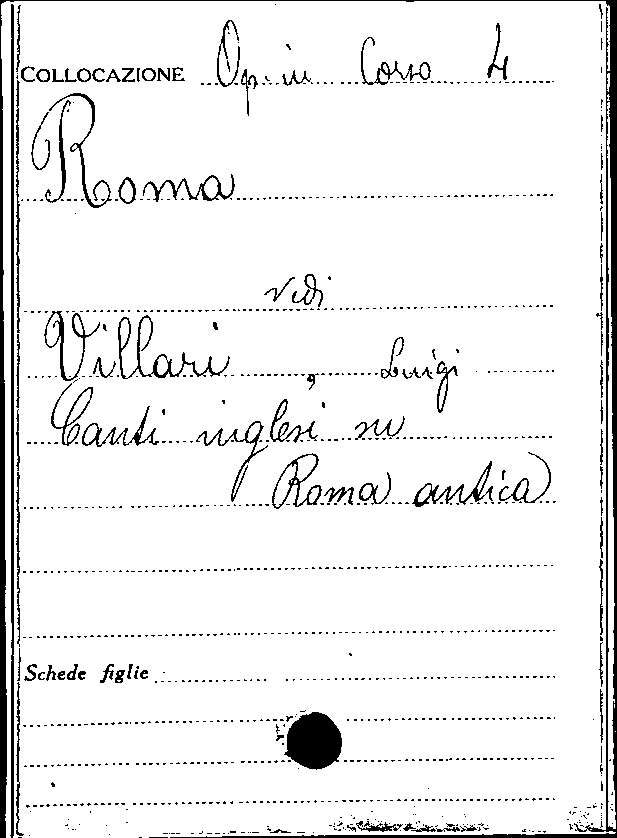 COLLOCAZIONE Op. in Corso 4
Roma
vedi
Villari, Luigi
Canti inglesi su
Roma antica
Schede figlie